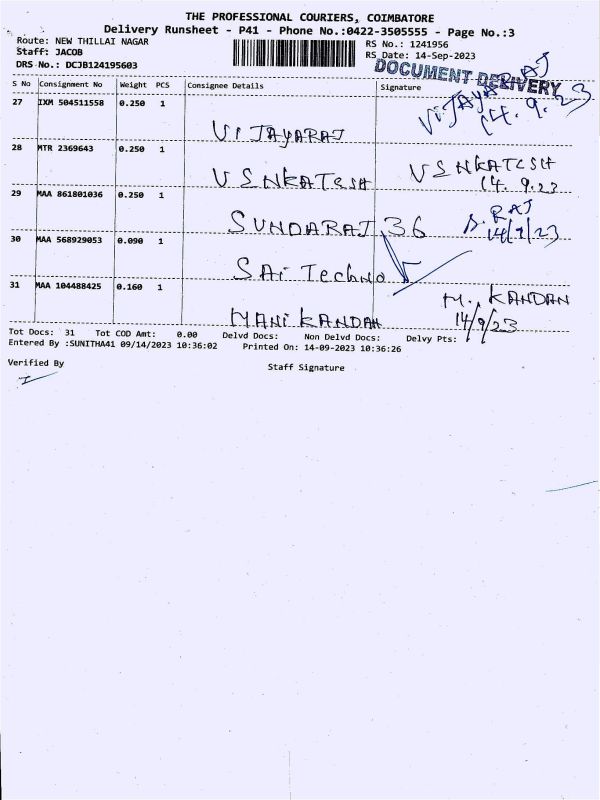 THE PROFESSIONAL COURIERS, COIMBATORE
Delivery Runsheet - P41 - Phone No.:0422-3505555 - Page No.:3
Route: NEW THILLAI NAGAR
RS No.: 1241956
Staff: JACOB
RS Date: 14-Sep-2023
DRS No.: DCJB124195603
DOCUMENT DELIVERY
S No Consignment No Weight PCS Consignee Details Signature
27 IXM 504511558 0.250 1
VIJAYARAJ VIJAYARAJ 14.9.23
28 MTR 2369643 0.250 1
VENKATESH VENKATESH 14.9.23
29 MAA 861801036 0.250 1
SUNDARAJ 36 S.RAJ 14/9/23
30 MAA 568929053 0.090 1
SAi Techno
31 MAA 104488425 0.160 1
MANIKANDAN M. KANDAN 14/9/23
Tot Docs: 31 Tot COD Amt: 0.00 Delvd Docs: Non Delvd Docs: Delvy Pts:
Entered By :SUNITHA41 09/14/2023 10:36:02 Printed On: 14-09-2023 10:36:26
Verified By
Staff Signature